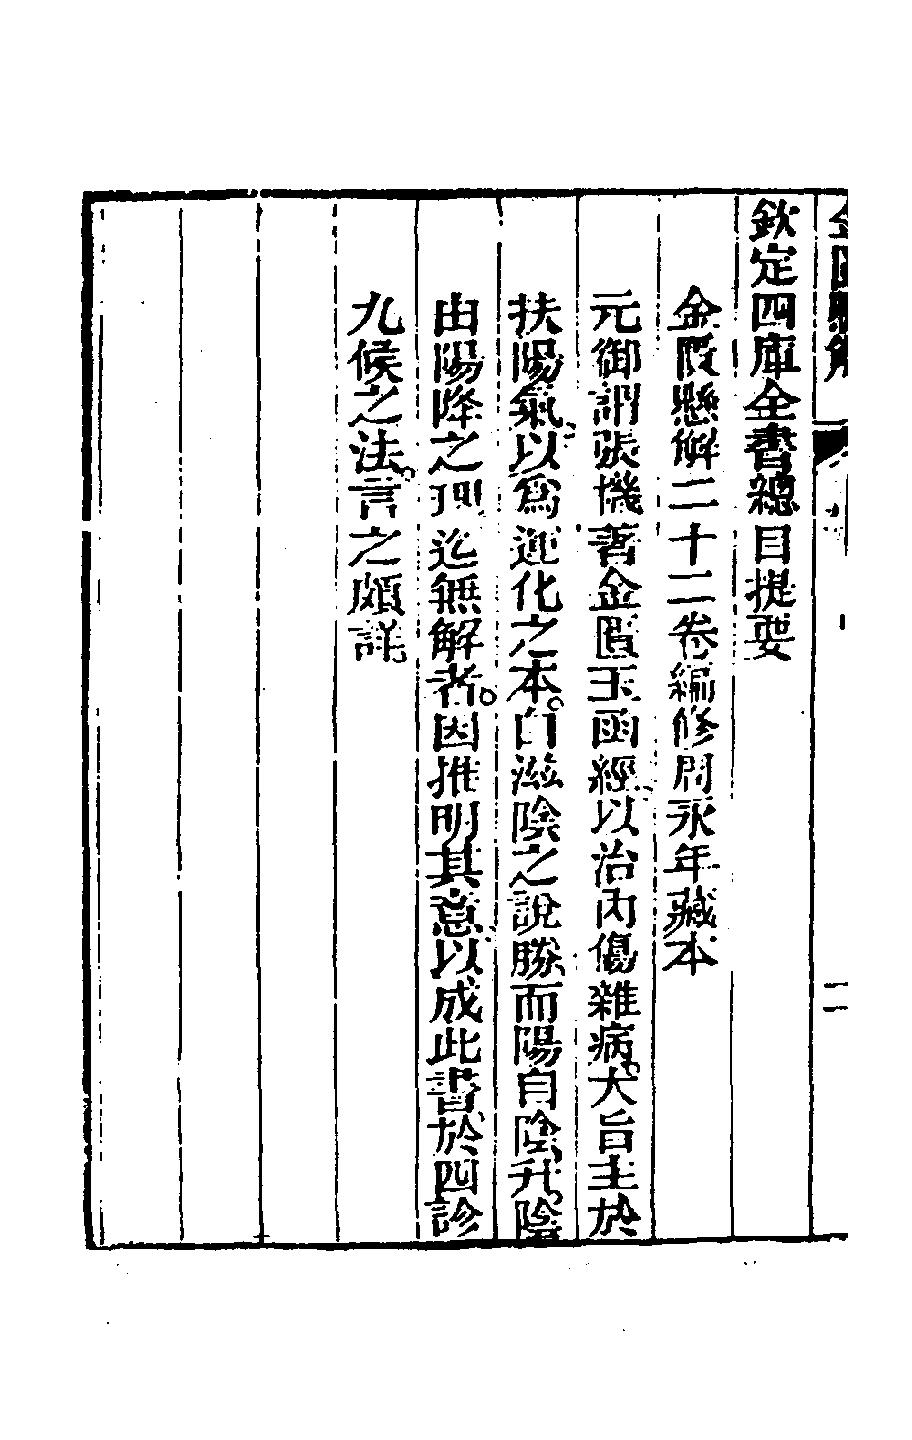 金匱懸解
欽定四庫全書總目提要
金匱懸解二十二卷編修周永年藏本
元御謂張機著金匱玉函經以治內傷雜病。大旨主於
扶陽氣以爲運化之本。自滋陰之說勝而陽自陰升。陰
由陽降之理迄無解者。因推明其意以成此書於四診
九候之法。言之頗詳